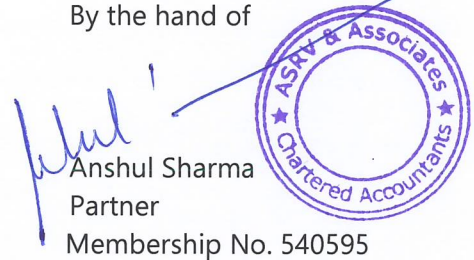 By the hand of
ASRV & Associates
★ Chartered Accountants ★
Anshul Sharma
Partner
Membership No. 540595